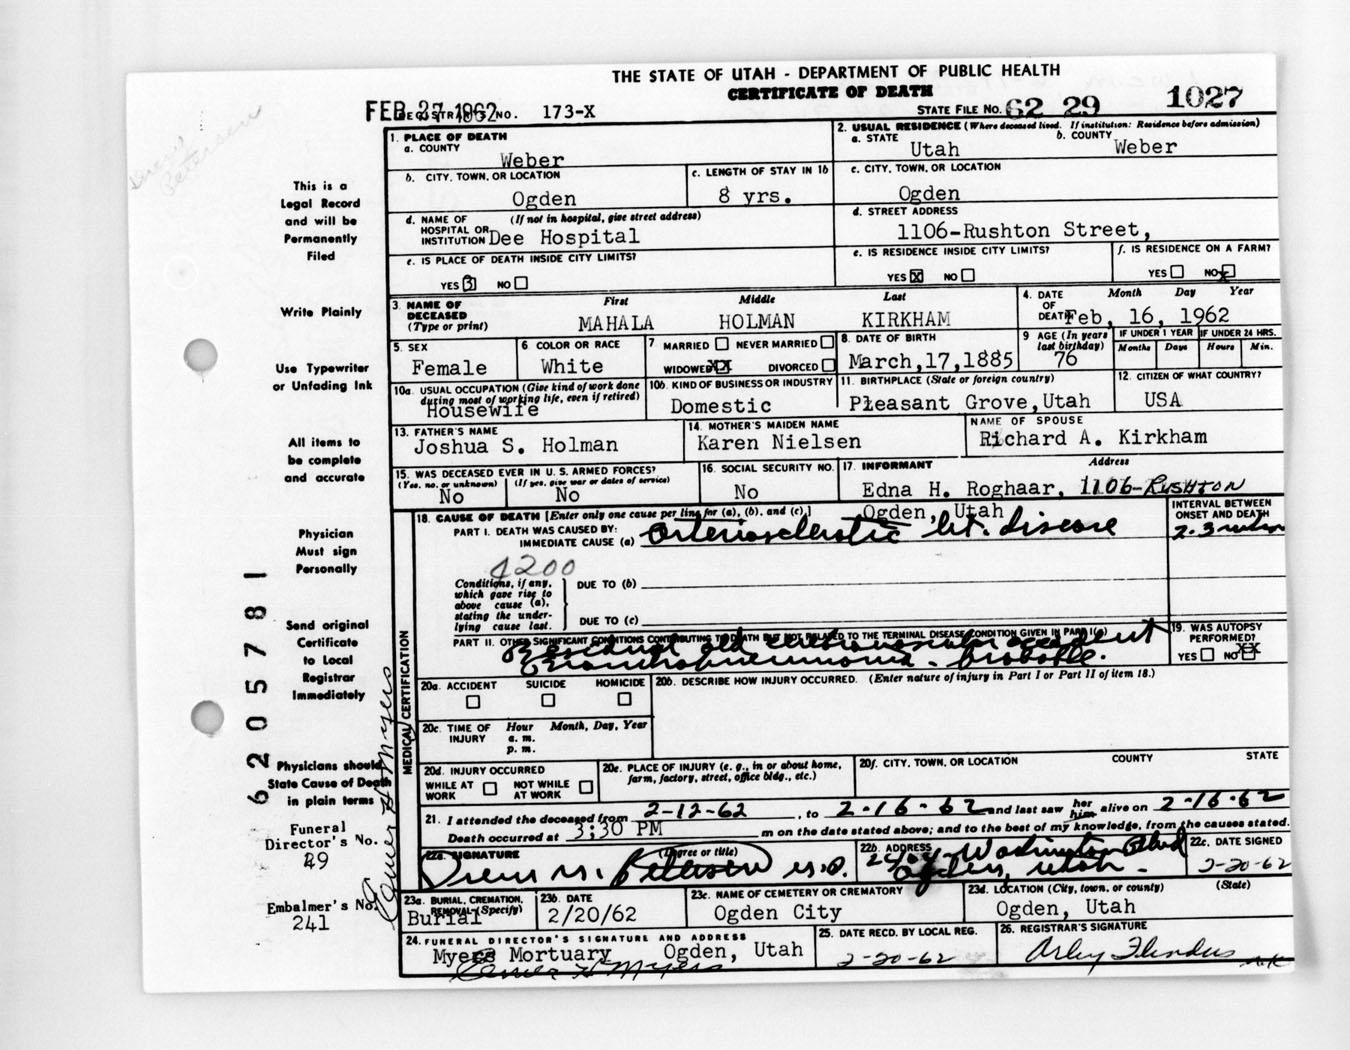 THE STATE OF UTAH - DEPARTMENT OF PUBLIC HEALTH
CERTIFICATE OF DEATH
FEB 27 1962 REGISTRAR'S NO. 173-X
STATE FILE NO. 62 29 1027
This is a
Legal Record
and will be
Permanently
Filed
Write Plainly
Use Typewriter
or Unfading Ink
All items to
be complete
and accurate
Physician
Must sign
Personally
Send original
Certificate
to Local
Registrar
Immediately
Physicians should
State Cause of Death
in plain terms
Funeral
Director's No.
49
Embalmer's No.
241
6205781
Elmer H Myers
MEDICAL CERTIFICATION
1. PLACE OF DEATH
a. COUNTY
Weber
2. USUAL RESIDENCE (Where deceased lived. If institution: Residence before admission)
a. STATE b. COUNTY
Utah Weber
b. CITY, TOWN, OR LOCATION
Ogden
c. LENGTH OF STAY IN 1b
8 yrs.
c. CITY, TOWN, OR LOCATION
Ogden
d. NAME OF (If not in hospital, give street address)
HOSPITAL OR
INSTITUTION Dee Hospital
d. STREET ADDRESS
1106-Rushton Street,
e. IS PLACE OF DEATH INSIDE CITY LIMITS?
YES NO
e. IS RESIDENCE INSIDE CITY LIMITS?
YES X NO
f. IS RESIDENCE ON A FARM?
YES NO X
3. NAME OF DECEASED (Type or print)
First Middle Last
MAHALA HOLMAN KIRKHAM
4. DATE OF DEATH
Month Day Year
Feb, 16, 1962
5. SEX
Female
6. COLOR OR RACE
White
7. MARRIED NEVER MARRIED
WIDOWED XX DIVORCED
8. DATE OF BIRTH
March,17,1885
9. AGE (In years last birthday)
76
IF UNDER 1 YEAR
Months Days
IF UNDER 24 HRS.
Hours Min.
10a. USUAL OCCUPATION (Give kind of work done
during most of working life, even if retired)
Housewife
10b. KIND OF BUSINESS OR INDUSTRY
Domestic
11. BIRTHPLACE (State or foreign country)
Pleasant Grove,Utah
12. CITIZEN OF WHAT COUNTRY?
USA
13. FATHER'S NAME
Joshua S. Holman
14. MOTHER'S MAIDEN NAME
Karen Nielsen
NAME OF SPOUSE
Richard A. Kirkham
15. WAS DECEASED EVER IN U. S. ARMED FORCES?
(Yes, no, or unknown) (If yes, give war or dates of service)
No No
16. SOCIAL SECURITY NO.
No
17. INFORMANT Address
Edna H. Roghaar, 1106-RUSHTON
Ogden, Utah
18. CAUSE OF DEATH [Enter only one cause per line for (a), (b), and (c).]
INTERVAL BETWEEN
ONSET AND DEATH
PART I. DEATH WAS CAUSED BY:
IMMEDIATE CAUSE (a) Arteriosclerotic ht. disease
4200
Conditions, if any,
which gave rise to
above cause (a),
stating the under-
lying cause last.
DUE TO (b)
DUE TO (c)
PART II. OTHER SIGNIFICANT CONDITIONS CONTRIBUTING TO DEATH BUT NOT RELATED TO THE TERMINAL DISEASE CONDITION GIVEN IN PART I(a)
Residual old cerebrovascular accident
Bronchopneumonia - probable.
19. WAS AUTOPSY
PERFORMED?
YES NO XX
20a. ACCIDENT SUICIDE HOMICIDE
20b. DESCRIBE HOW INJURY OCCURRED. (Enter nature of injury in Part I or Part II of item 18.)
20c. TIME OF INJURY
Hour Month, Day, Year
a. m.
p. m.
20d. INJURY OCCURRED
WHILE AT WORK NOT WHILE AT WORK
20e. PLACE OF INJURY (e. g., in or about home,
farm, factory, street, office bldg., etc.)
20f. CITY, TOWN, OR LOCATION COUNTY STATE
21. I attended the deceased from 2-12-62, to 2-16-62 and last saw her him alive on 2-16-62
Death occurred at 3:30 PM m on the date stated above; and to the best of my knowledge, from the causes stated.
22a. SIGNATURE (Degree or title)
M. Petersen M.D.
22b. ADDRESS
Washington Blvd
Ogden, Utah.
22c. DATE SIGNED
2-20-62
23a. BURIAL, CREMATION,
REMOVAL (Specify)
Burial
23b. DATE
2/20/62
23c. NAME OF CEMETERY OR CREMATORY
Ogden City
23d. LOCATION (City, town, or county) (State)
Ogden, Utah
24. FUNERAL DIRECTOR'S SIGNATURE AND ADDRESS
Myers Mortuary Ogden, Utah
Elmer H Myers
25. DATE RECD. BY LOCAL REG.
2-20-62
26. REGISTRAR'S SIGNATURE
Arley Flinders